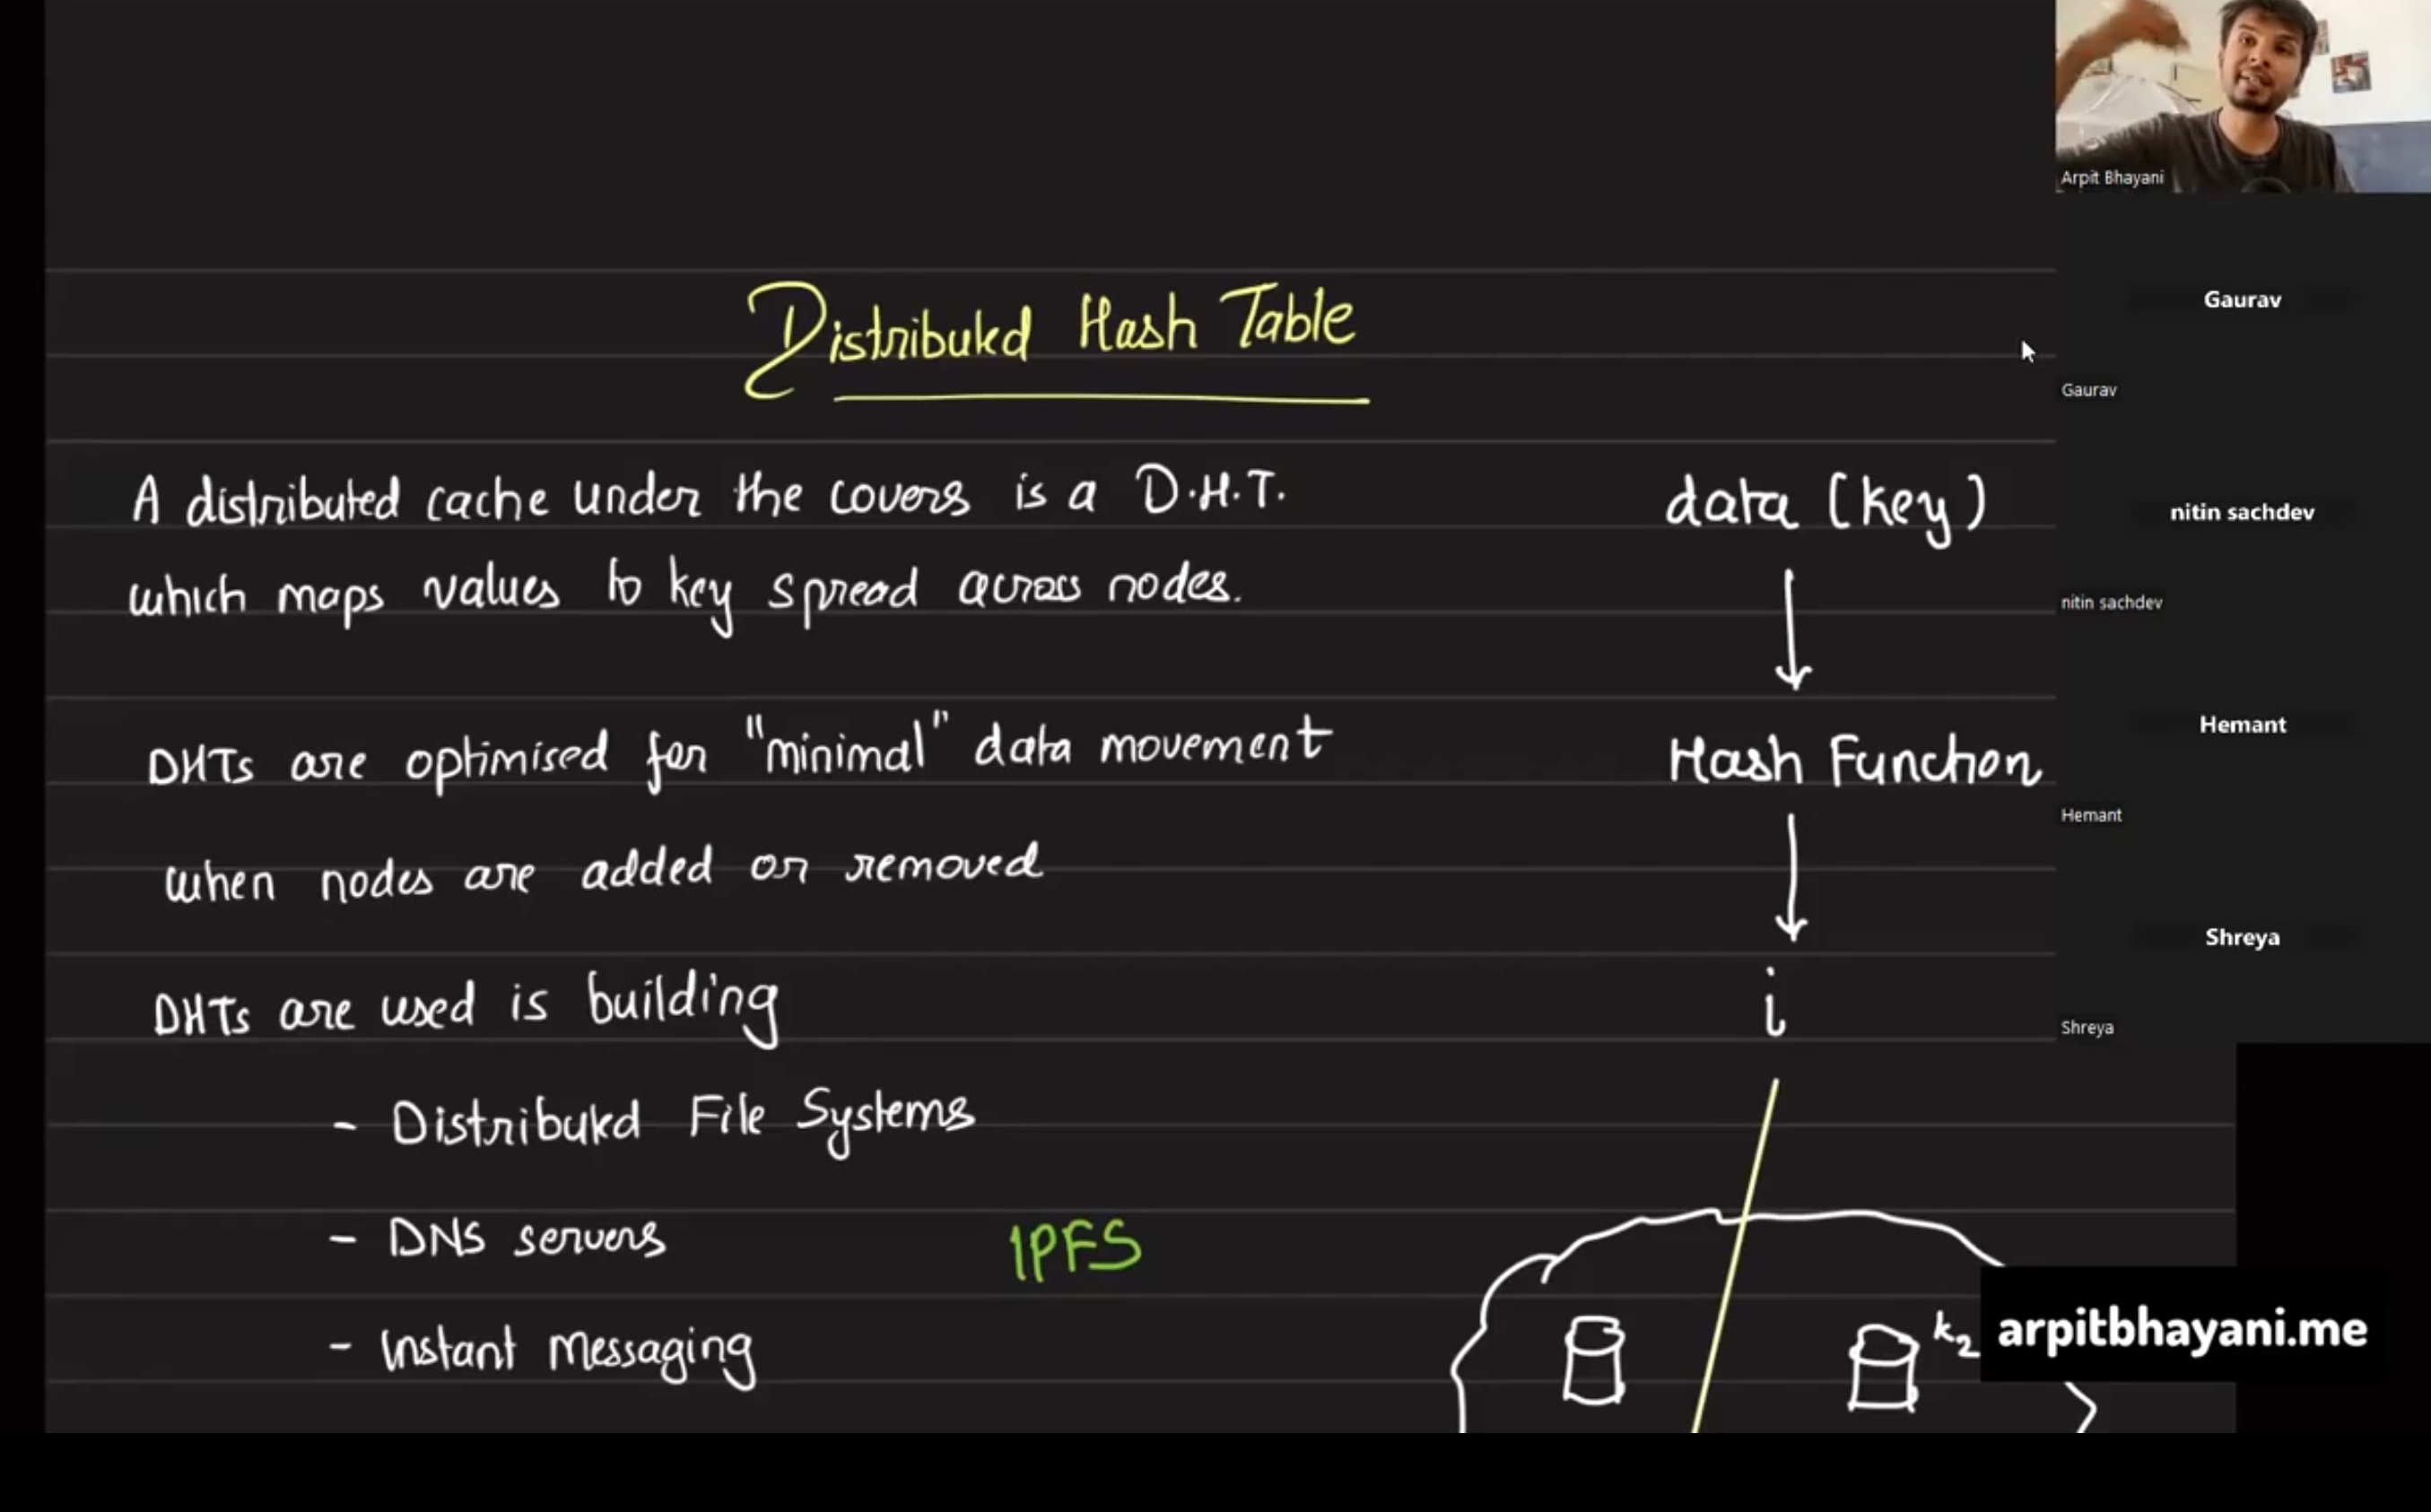 Distributed Hash Table
A distributed cache under the covers is a D.H.T.
which maps values to key spread across nodes.
DHTs are optimised for "minimal" data movement
when nodes are added or removed
DHTs are used is building
- Distributed File Systems
- DNS servers
IPFS
- Instant Messaging
data (key)
Hash Function
i
k2
Arpit Bhayani
Gaurav
Gaurav
nitin sachdev
nitin sachdev
Hemant
Hemant
Shreya
Shreya
arpitbhayani.me